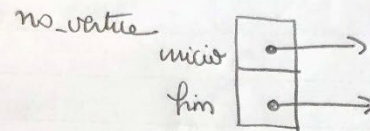 no_vertice
inicio
fim